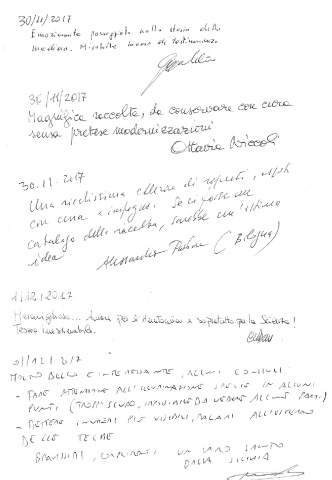 30/11/2017
Emozionante passeggiata nella storia della
medicina. Mirabile lavoro di testimonianza
30/11/2017
Magnifica raccolta, da conservare con cura
senza pretese modernizzazioni
Ottavia Niccoli
30.11.2017
Una ricchissima collezione di reperti,
con cura e impegno. Se ci fosse un
catalogo della raccolta, sarebbe un'ottima
idea
Alessandro (Bologna)
1/12/2017
Meraviglioso... Amore per l'Anatomia e soprattutto per la Scienza!
Tesoro inestimabile.
01/12/2017
MOLTO BELLO E INTERESSANTE, ALCUNI CONSIGLI:
- FARE ATTENZIONE ALL'ILLUMINAZIONE SPECIE IN ALCUNI
PUNTI (TROPPO SCURO, IMPOSSIBILE DA VEDERE ALCUNE PARTI)
- METTERE NUMERI PIÙ VISIBILI, MAGARI ALL'ESTERNO
DELLE TECHE
BRAVISSIMI, COMPLIMENTI UN CARO SALUTO
DALLA SICILIA